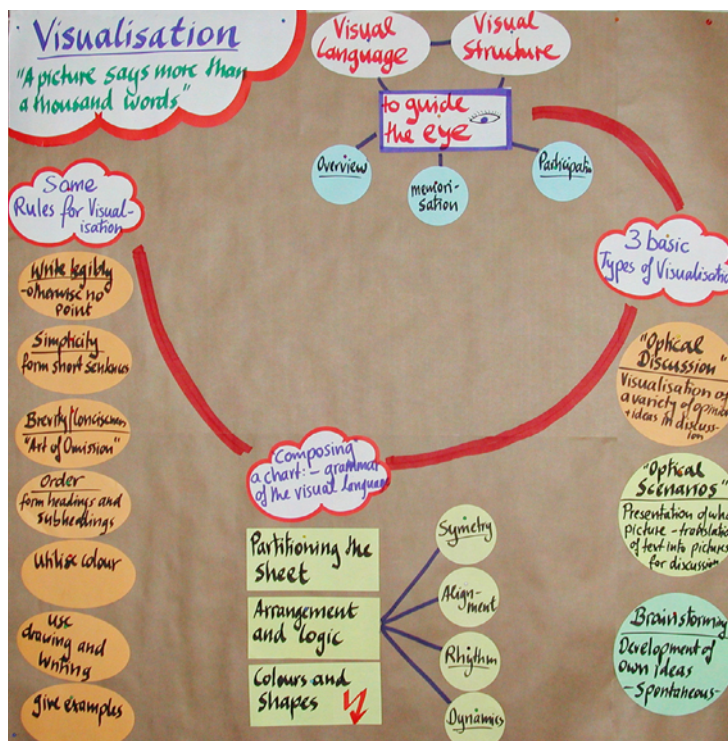 Visualisation
"A picture says more than
a thousand words"
Visual
Language
Visual
Structure
to guide
the eye
Overview
memori-
sation
Participati
Some
Rules for Visual-
isation
Write legibly
-otherwise no
point
Simplicity
form short sentences
Brevity/Conciseness
"Art of Omission"
Order
form headings and
subheadings
Utilise colour
use
drawing and
writing
give examples
3 basic
Types of Visualisation
"Optical
Discussion"
Visualisation of
a variety of opinion
+ ideas in discuss-
ion
"Optical
Scenarios"
Presentation of
picture - translation
of text into picture
for discussion
Brainstorming
Development of
own ideas
-Spontaneous-
"Composing
a chart: - grammar
of the visual language
Partitioning the
sheet
Arrangement
and logic
Colours and
shapes
Symetry
Align-
ment
Rhythm
Dynamics